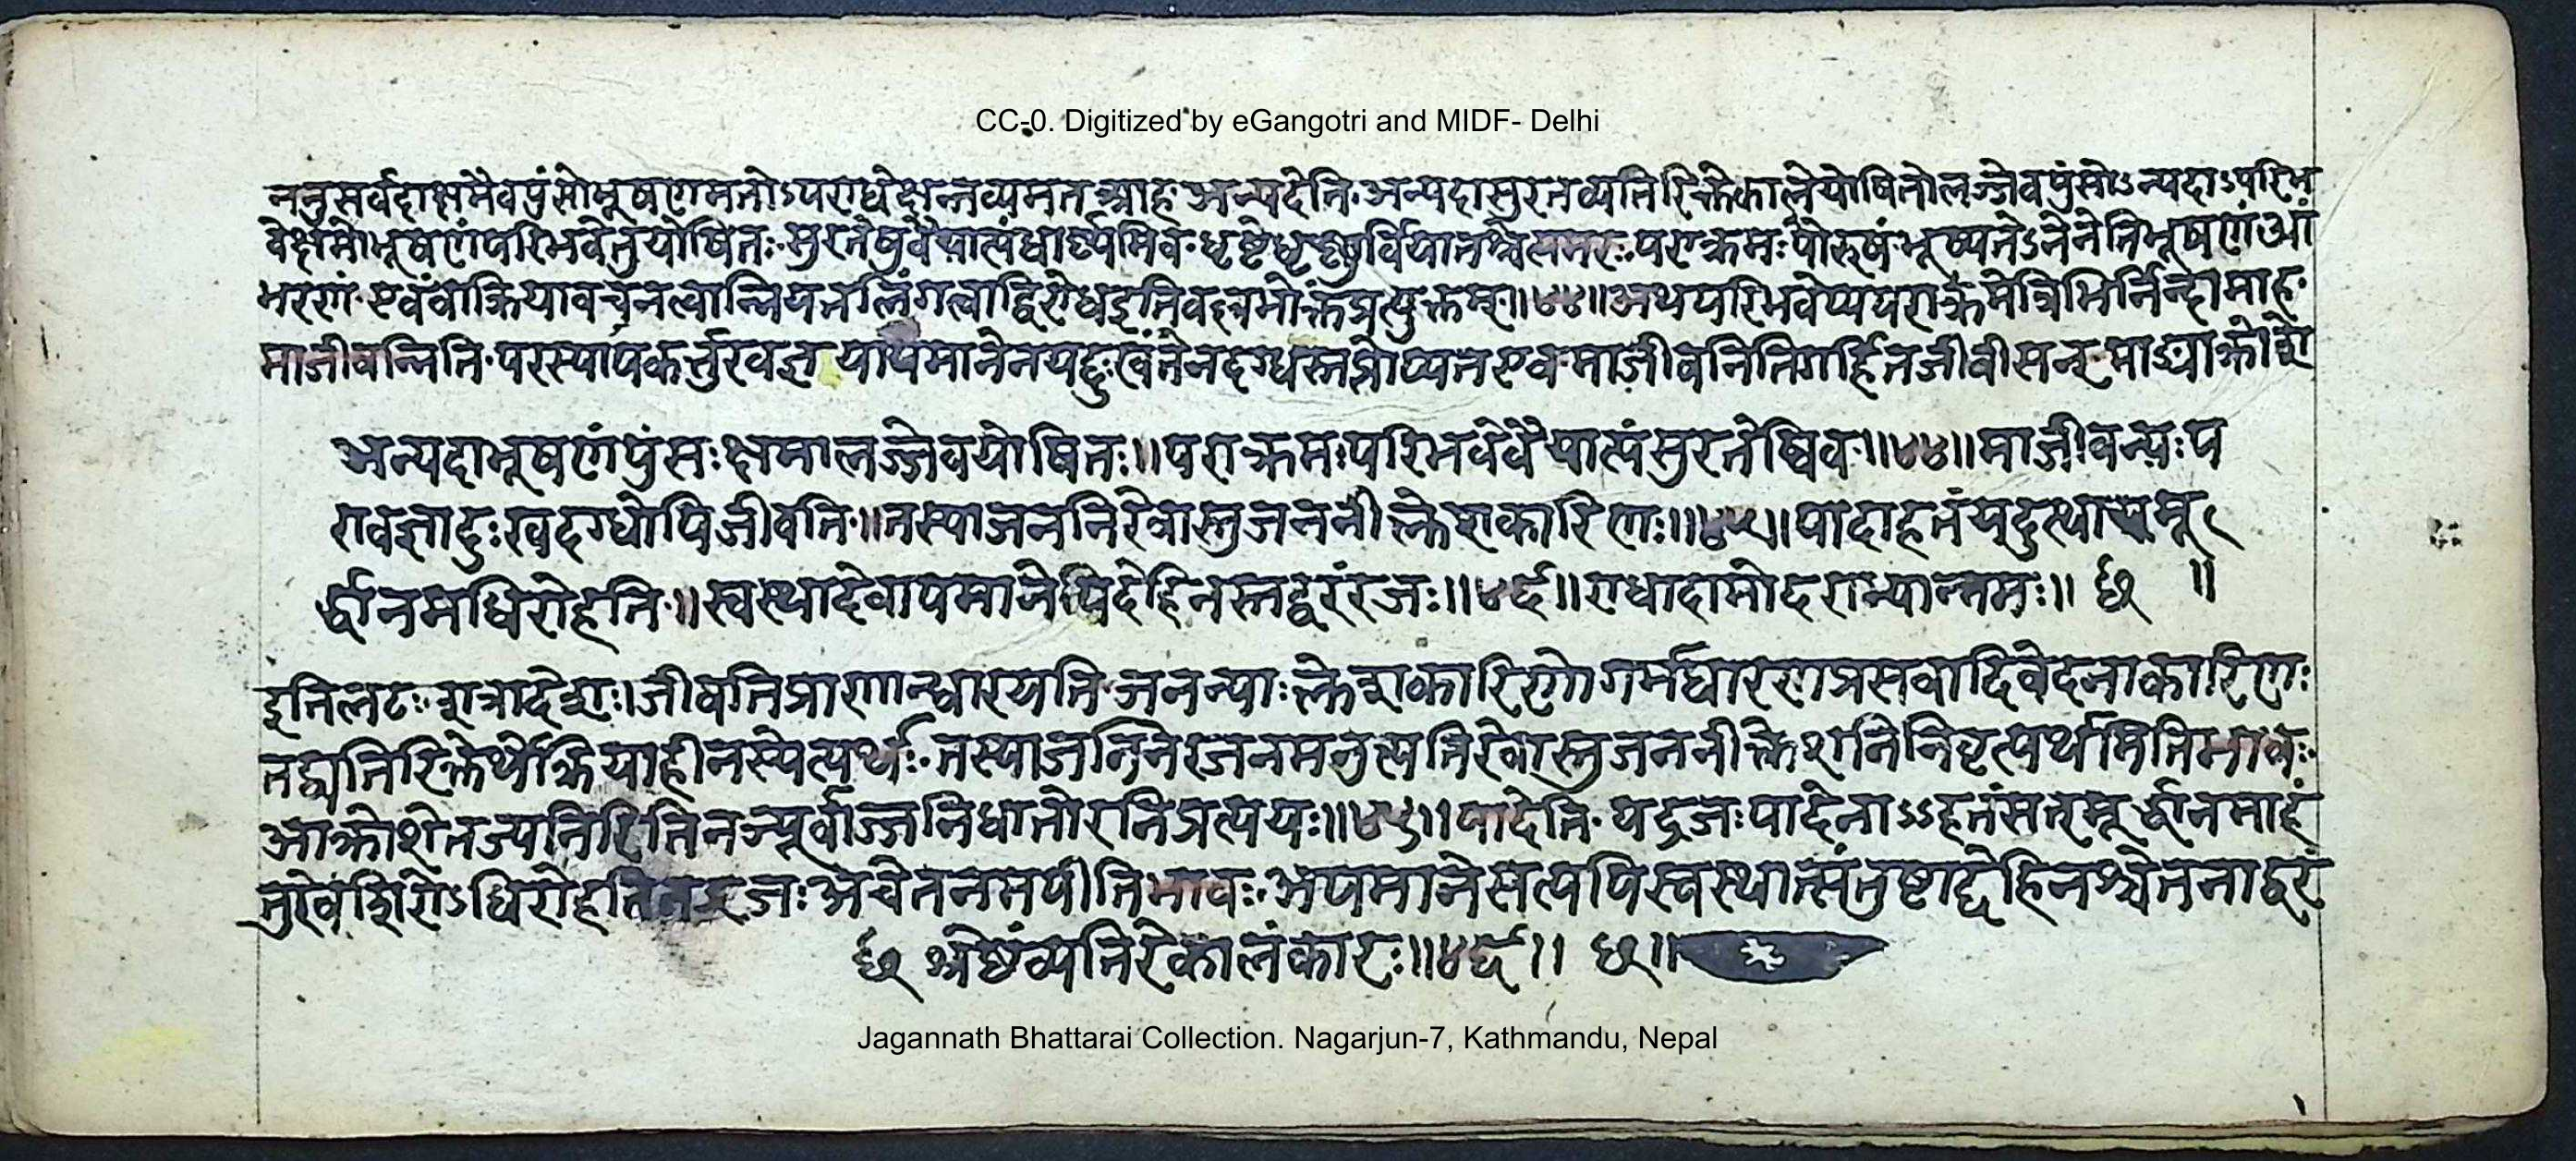 CC-0. Digitized by eGangotri and MIDF- Delhi
ननुसर्वदाक्षमैवपुंसोभूषणमतोऽपराधेक्षन्तव्यमतआह अन्यदेति अन्यदासुरतव्यतिरिक्तेकालेयोषितोलज्जेवपुंसोऽन्यदाऽपरिभ
वेक्षमाभूषणंपरिभवेतुयोषितः सुरतेषुवैयात्यंधार्ष्ट्यमिव धृष्टेधृष्णुर्वियातश्चेत्यमरः पराक्रमः पौरुषं भूष्यतेऽनेनेतिभूषणंआ
भरणं एवंचाक्रियावचनत्वान्नियतलिंगत्वाद्विरोधइतिवल्लभोक्तंप्रत्युक्तम् ॥४४॥ अथपरिभवेप्यपराक्रमेत्रिभिर्निन्दामाह
माजीवन्निति परस्यापकर्त्तुरवज्ञयापमानेनयद्दुःखंतेनदग्धस्तप्तोप्यतएव माजीवनितिगर्हितजीवीसन् माङ्याक्रोशे
अन्यदाभूषणंपुंसः क्षमालज्जेवयोषितः ॥ पराक्रमः परिभवेवैयात्यंसुरतेष्विव ॥४४॥ माजीवन्यः प
रावज्ञादुःखदग्धोपिजीवति ॥ तस्याजननिरेवास्तुजननीक्लेशकारिणः ॥४५॥ पादाहतंयदुत्थायमू
र्द्धानमधिरोहति ॥ स्वस्थादेवापमानेपिदेहिनस्तद्वरंरजः ॥४६॥ राधादामोदराभ्यान्नमः ॥ छ ॥
इतिलटः शत्रादेशः । जीवतिप्राणान्धारयति जनन्याः क्लेशकारिणोगर्भधारणप्रसवादिवेदनाकारिणः
तद्व्यतिरिक्तेर्थेक्रियाहीनस्येत्यर्थः तस्याजनिनेरजनमनुत्पत्तिरेवास्तुजननीक्लेशनिनिवृत्यर्थमितिभावः
आक्रोशेनञ्यनिरितिनञ्पूर्वाज्जनिधातोरनिप्रत्ययः ॥४५॥ पादेति यद्रजः पादेनाऽऽहतंसत्मूर्द्धानमाहं
तुरेवशिरोऽधिरोहतितद्रजः अचेतनमपीतिभावः अपमानेसत्यपिस्वस्थात्संतुष्टाद्देहिनश्चेतनाद्वरं
छ श्रेष्ठंव्यतिरेकालंकारः ॥४६॥ छ ॥
Jagannath Bhattarai Collection. Nagarjun-7, Kathmandu, Nepal